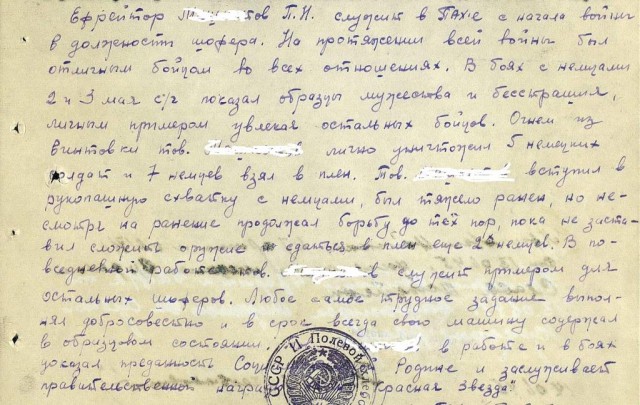 Ефрейтор тов П.И. служит в ПАХ'е с начала войны
в должности шофера. На протяжении всей войны был
отличным бойцом во всех отношениях. В боях с немцами
2 и 3 мая с/г показал образцы мужества и бесстрашия,
личным примером увлекая остальных бойцов. Огнем из
винтовки тов. лично уничтожил 5 немецких
солдат и 7 немцев взял в плен. Тов. вступил в
рукопашную схватку с немцами, был тяжело ранен, но не-
смотря на ранение продолжал борьбу до тех пор, пока не заста-
вил сложить оружие и сдаться в плен еще 2х немцев. В по-
вседневной работе тов. в служит примером для
остальных шоферов. Любое самое трудное задание выпол-
нял добросовестно и в срок всегда свою машину содержал
в образцовом состоянии. в работе и в боях
доказал преданность Соци Родине и заслуживает
правительственной награ Красная Звезда"
СССР Полевой